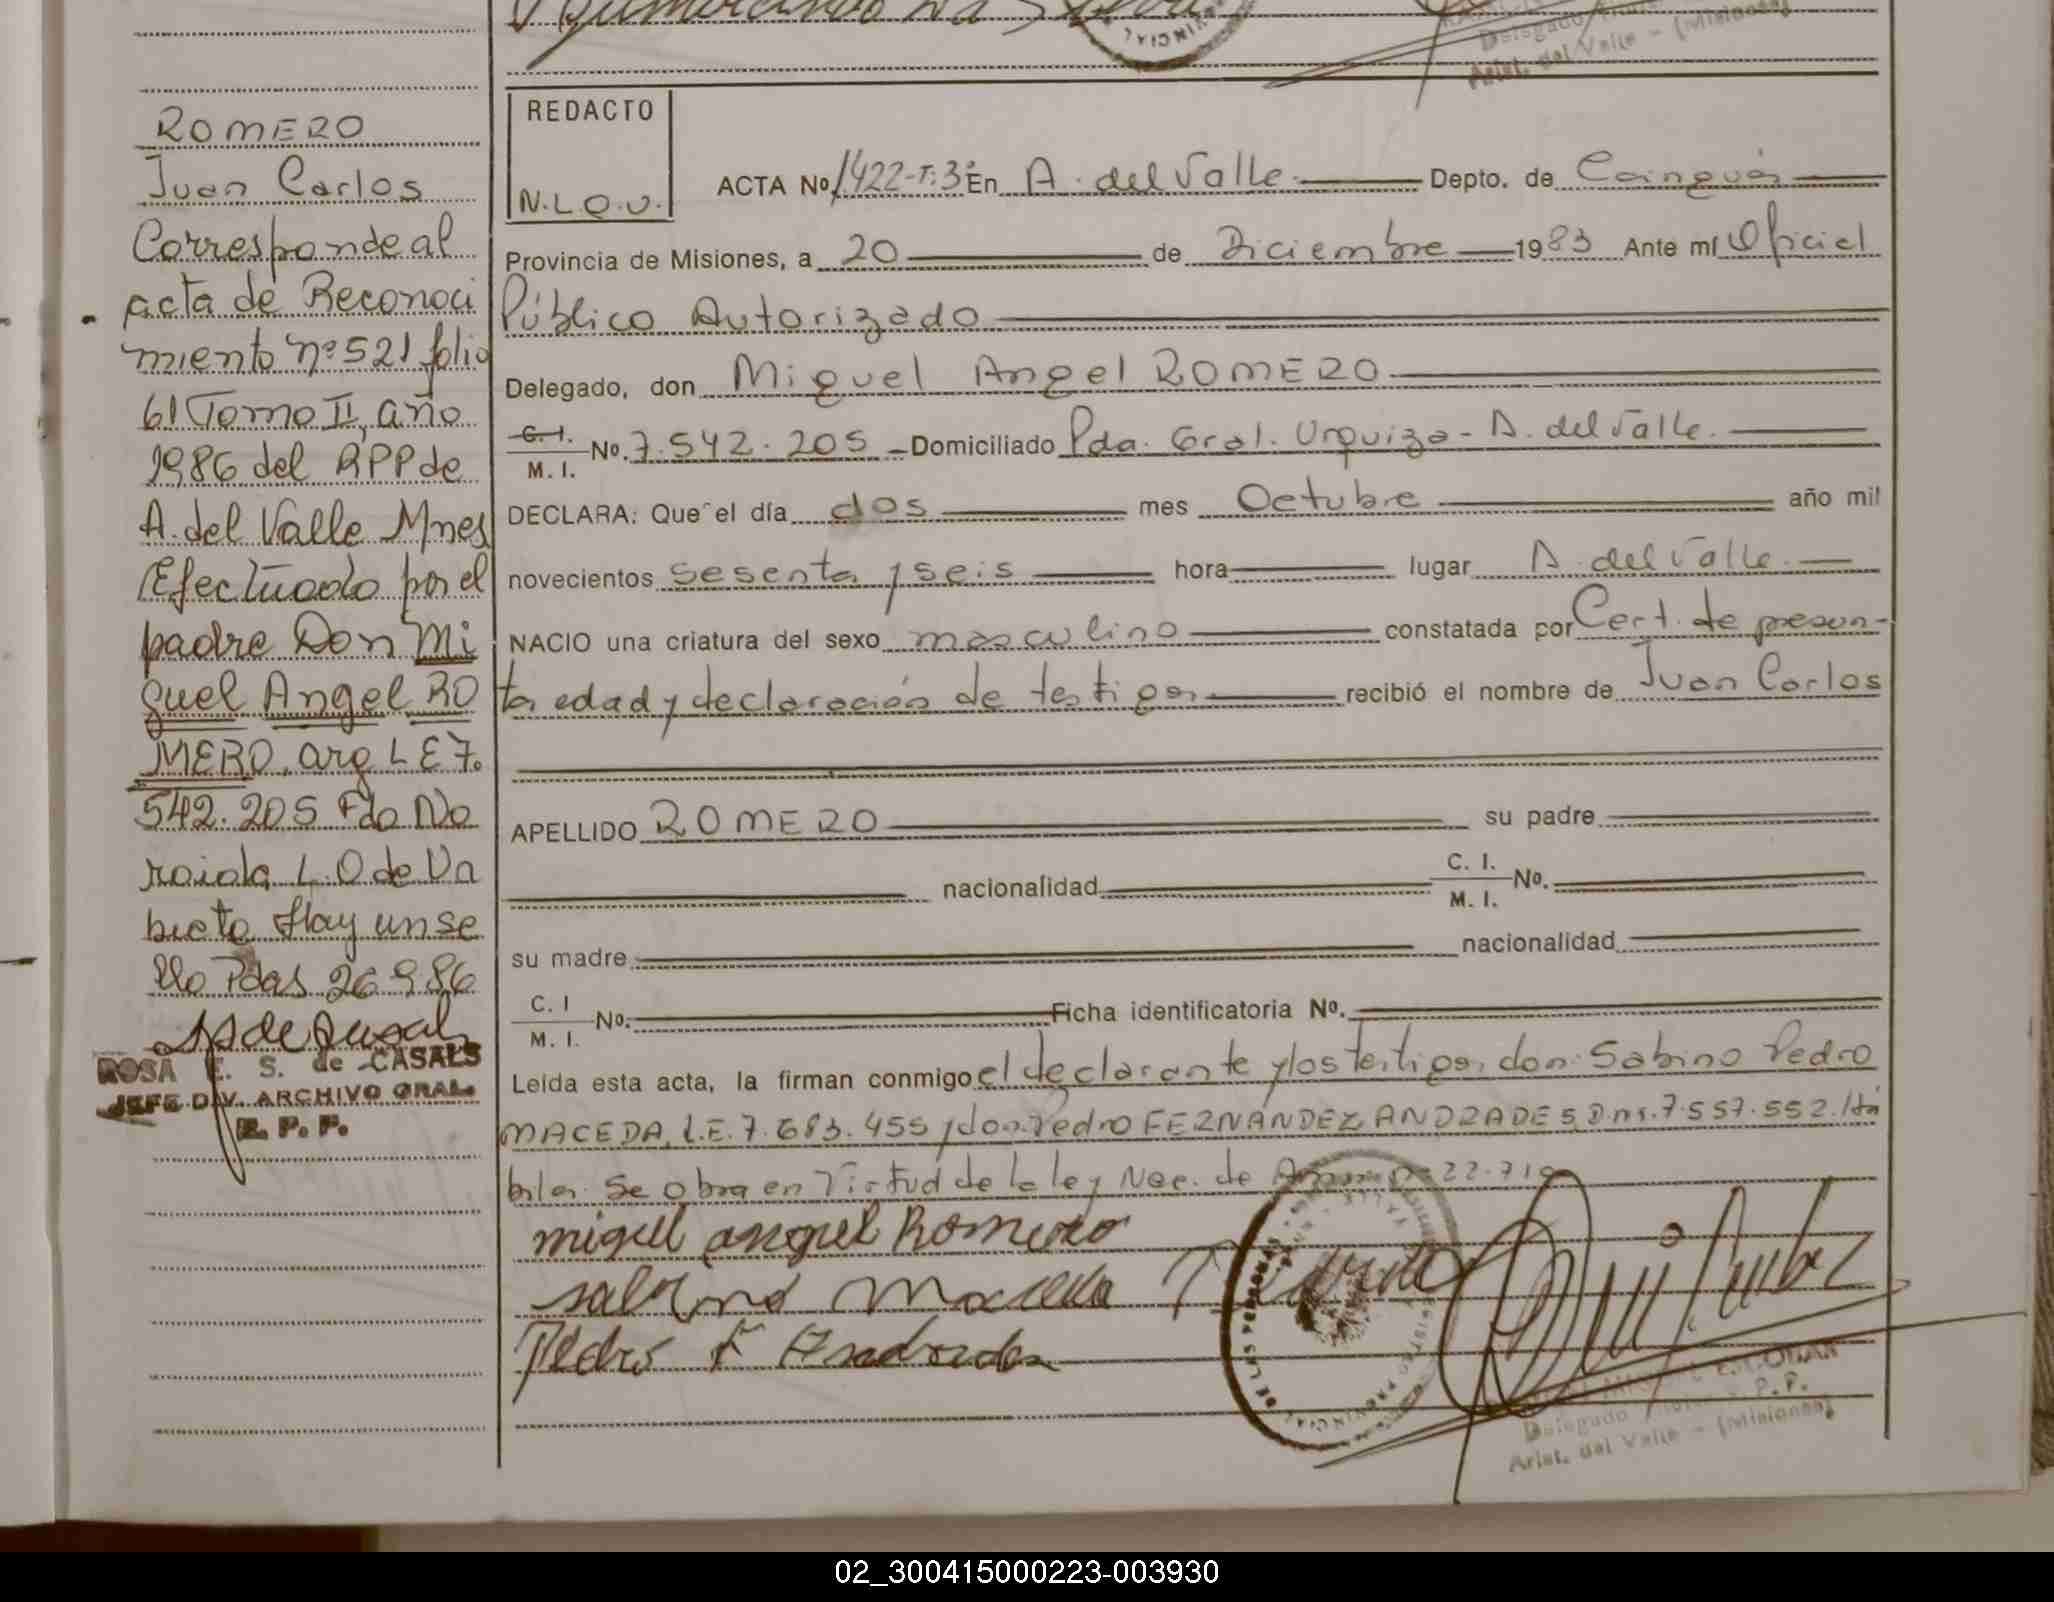 Delegado
Arist. del Valle - (Misiones)
ROMERO
Juan Carlos
Corresponde al
acta de Reconoci
miento nº 521 folio
61 Tomo II, año
1986 del RPP de
A. del Valle Mnes
Efectuado por el
padre Don Mi
guel Angel RO
MERO, arg LE 7.
542.205 Fdo No
raida L.O de Ur
bieta Hay un se
llo Pdas 26 9 86
ROSA E. S. de CASALS
JEFE DIV. ARCHIVO GRAL.
R. P. P.
REDACTO
N.L.O.U.
ACTA Nº 1422-T:3º En A. del Valle. Depto. de Cainguás
Provincia de Misiones, a 20 de Diciembre 1983 Ante mí Oficial
Público Autorizado
Delegado, don Miguel Angel ROMERO
C. I.
M. I. Nº. 7.542.205 - Domiciliado Pda. Gral. Urquiza - A. del Valle.
DECLARA: Que el día dos mes Octubre año mil
novecientos sesenta y seis hora lugar A. del Valle.
NACIO una criatura del sexo masculino constatada por Cert. de presun-
ta edad y declaración de testigos recibió el nombre de Juan Carlos
APELLIDO ROMERO su padre
nacionalidad C. I.
M. I. Nº.
su madre nacionalidad
C. I
M. I. Nº. Ficha identificatoria Nº.
Leída esta acta, la firman conmigo el declarante y los testigos, don: Sabino Pedro
MACEDA, L.E. 7.683.455 y don: Pedro FERNANDEZ ANDRADES, D.n.i. 7.557.552. Há
biles. Se obra en Virtud de la ley Nac. de
miguel angel Romero
sabino Maceda
Pedro F Andrades
DE LAS PERSONAS
PROVINCIAL
ESCOBAR
Delegado P. P.
Arist. del Valle - (Misiones)
02_300415000223-003930